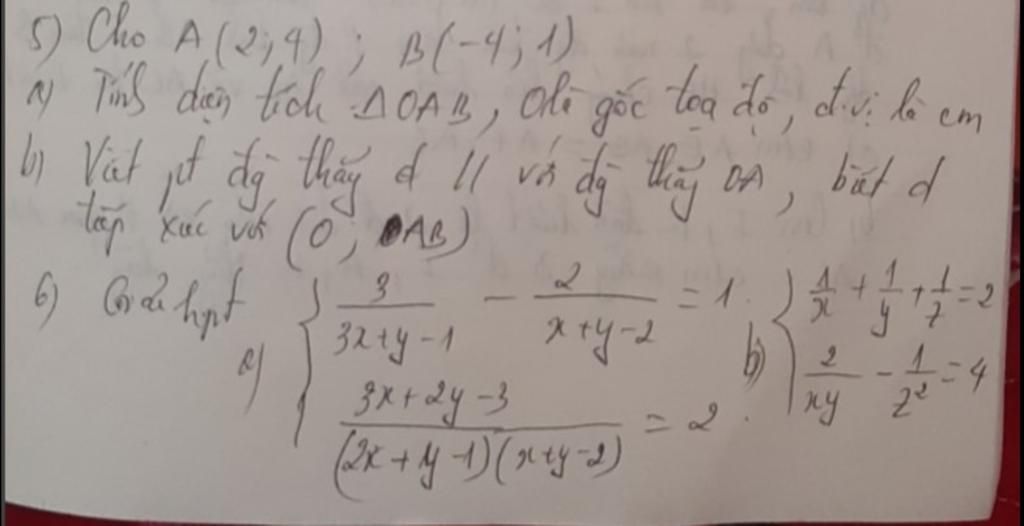 5) Cho A(2;4) ; B(-4;1)
a) Tính diện tích ΔOAB, O là gốc toạ độ, đ.vị là cm
b) Viết pt đg thẳg d // với đg thẳg OA, biết d
tiếp xúc với (O; AB)
6) Giải hpt
a) { 3/(3x+y-1) - 2/(x+y-2) = 1
(3x+2y-3)/((2x+y-1)(x+y-2)) = 2.
b) { 1/x + 1/y + 1/z = 2
2/xy - 1/z² = 4